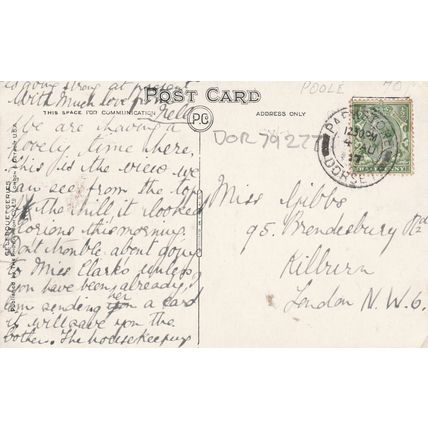 is going strong at present
With much love from
Nell
POST CARD
THIS SPACE FOR COMMUNICATION
P.C
ADDRESS ONLY
POOLE
70
DOR 79277
We are having a
lovely time here,
this is the view we
can see from the top
of the hill, it looked
glorious this morning
Don't trouble about going
to Miss Clarks unless
you have been already, I
am sending her a card
it will save you the
bother. The housekeeping
Miss Gibbs
95. Brendesbury Rd
Kilburn
London N.W.6.
PARKSTONE
12 30 PM
4 AU
DORSET